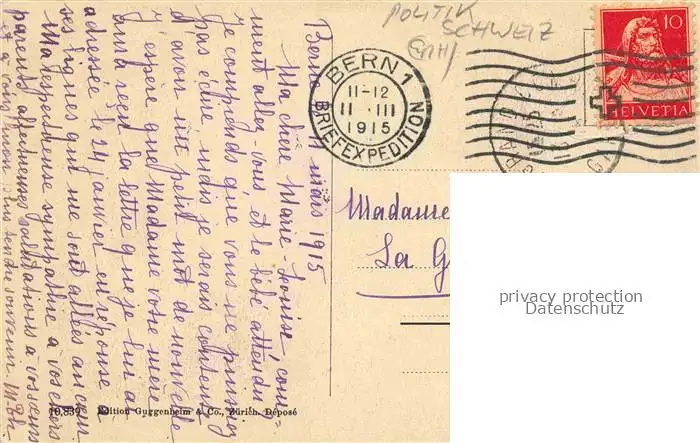 POLITIK
SCHWEIZ
BERN 1
11-12
11 . III
1915
BRIEFEXPEDITION
10
HELVETIA
Berne 11 mars 1915
Ma chère Marie-Louise, com-
ment allez-vous et le bébé attendu =
Je comprends que vous ne puissiez
pas écrire mais je serais contente
d'avoir un petit mot de nouvelle
J'espère que Madame votre mère
aura reçu la lettre que je lui ai
adressée le 24 janvier en réponse à
ses lignes qui me sont allées au cœur
Ma respectueuse sympathie à vos chers
parents, affectueuses salutations à vos sœurs
et à vous mon plus tendre souvenir
Madame
La G
privacy protection
Datenschutz
10,839 Edition Guggenheim & Co., Zürich. Déposé